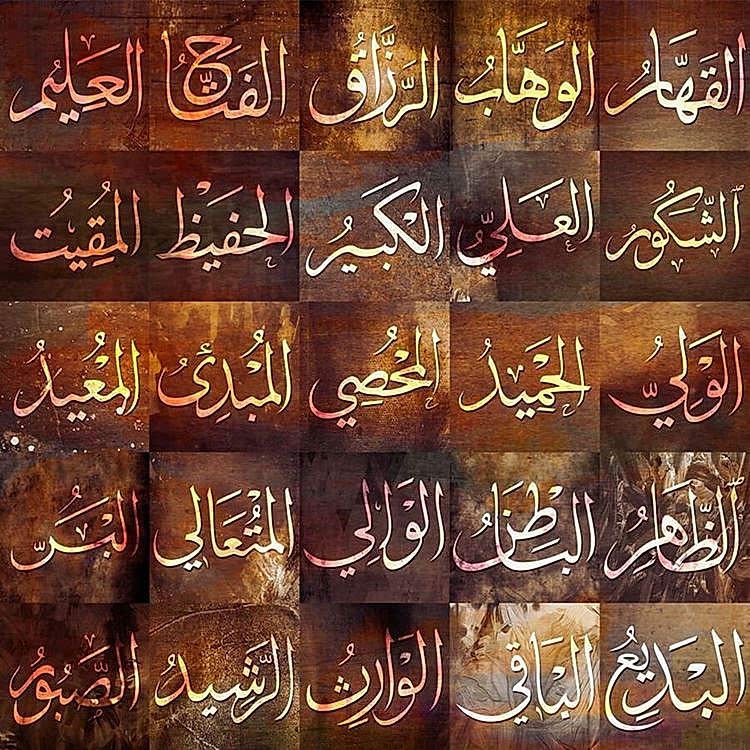 القَهَّارُ الوَهَّابُ الرَّزَّاقُ الفَتَّاحُ العَلِيمُ
الشَّكُورُ العَلِيُّ الكَبِيرُ الحَفِيظُ المُقِيتُ
الوَلِيُّ الحَمِيدُ المُحْصِي المُبْدِئُ المُعِيدُ
الظَّاهِرُ البَاطِنُ الوَالِي المُتَعَالِي البَرُّ
البَدِيعُ البَاقِي الوَارِثُ الرَّشِيدُ الصَّبُورُ